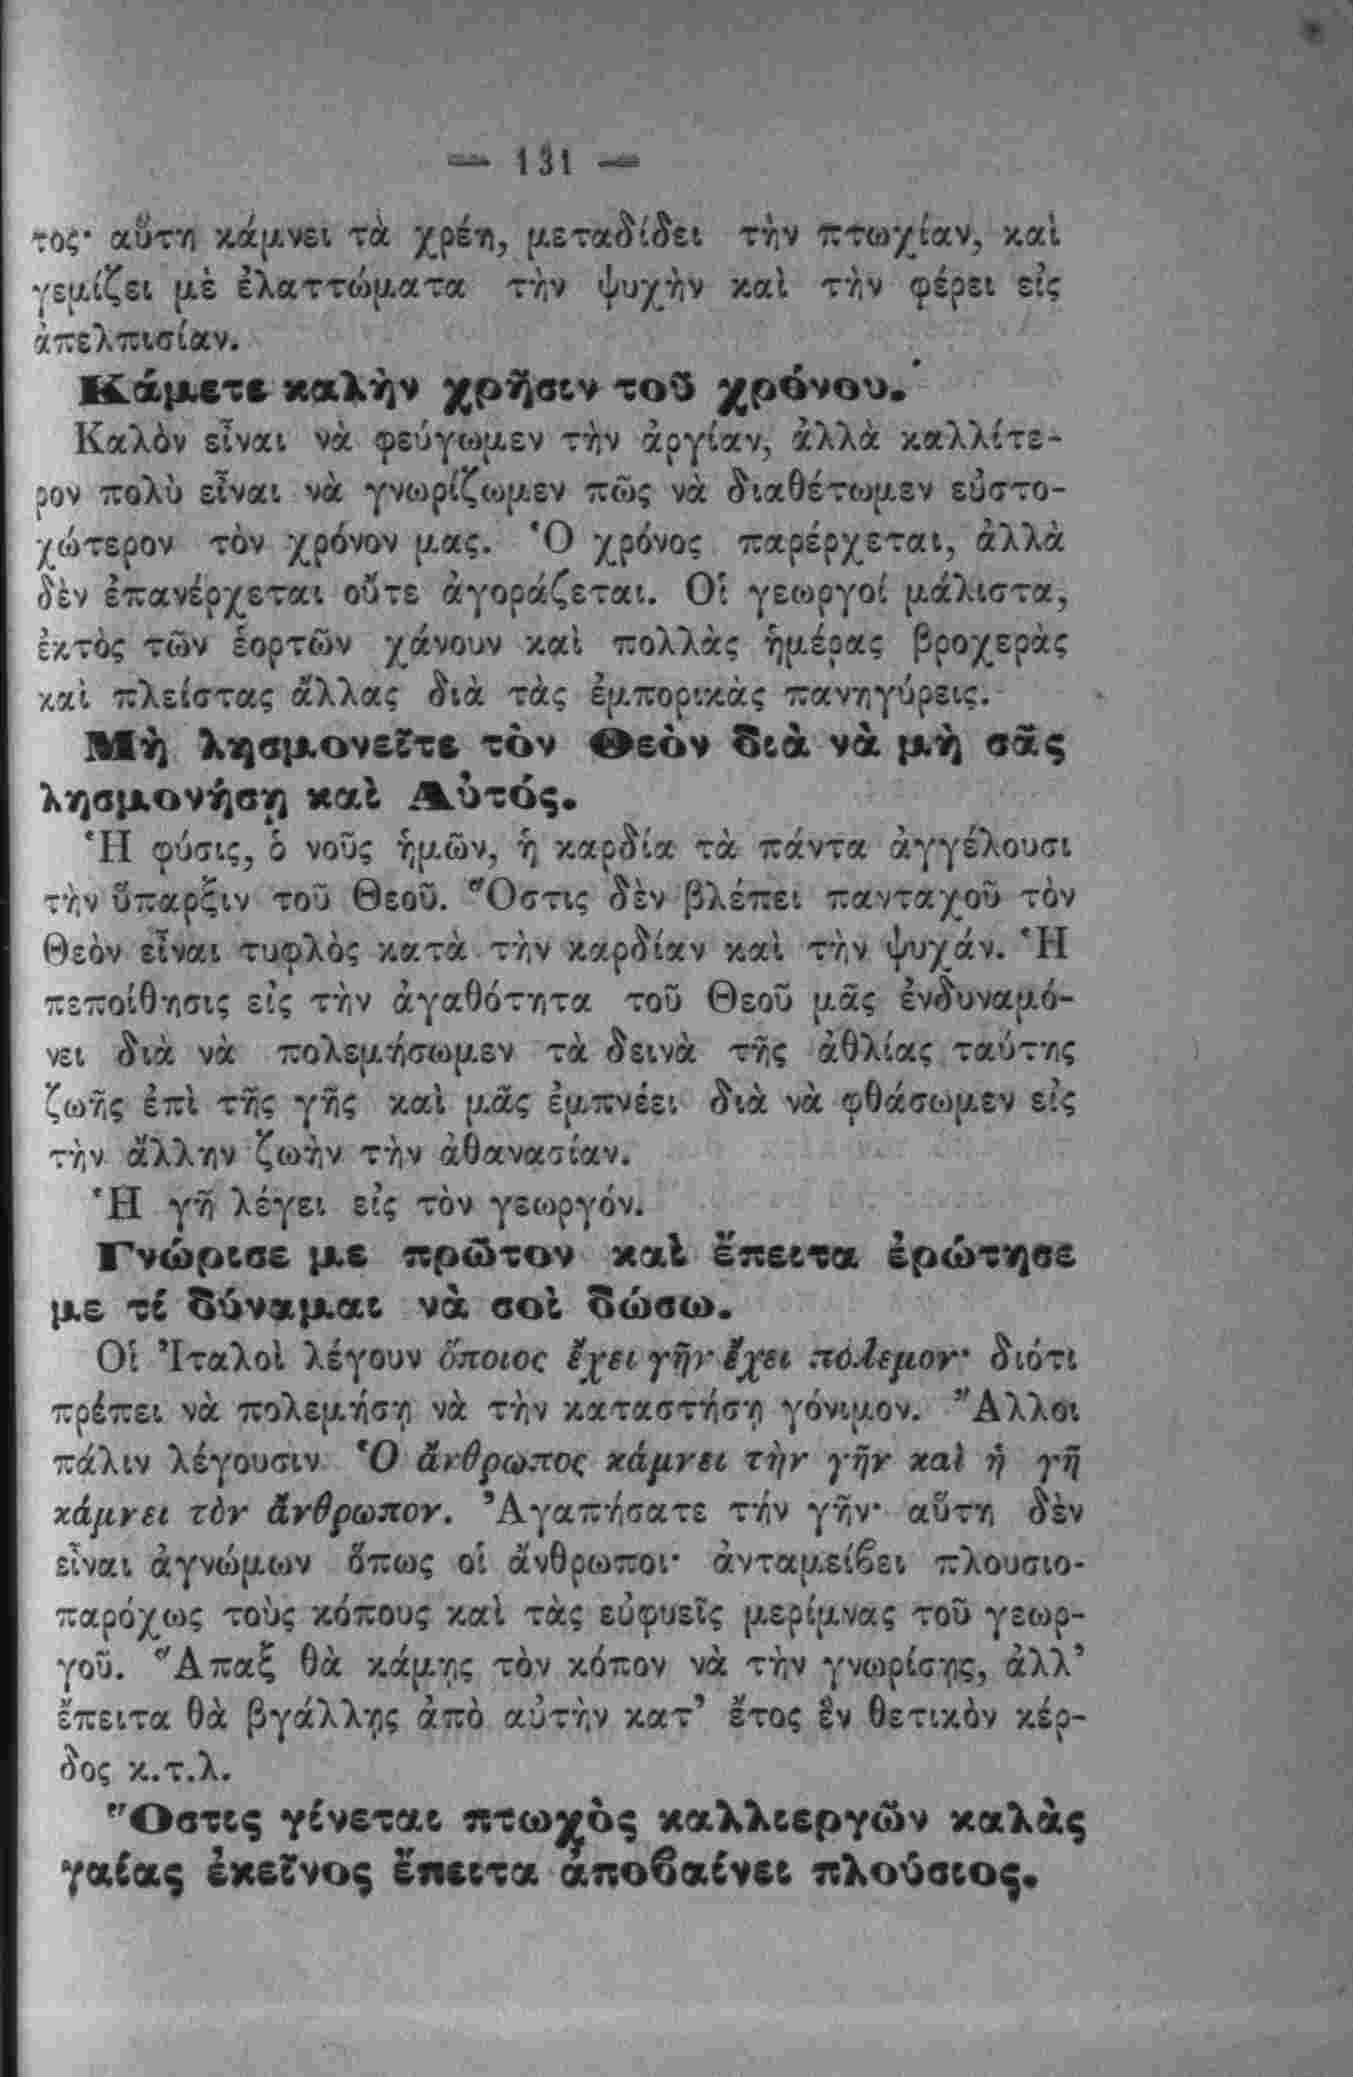 — 131 —
τος· αὕτη κάμνει τὰ χρέη, μεταδίδει τὴν πτωχίαν, καὶ
γεμίζει μὲ ἐλαττώματα τὴν ψυχὴν καὶ τὴν φέρει εἰς
ἀπελπισίαν.
Κάμετε καλὴν χρῆσιν τοῦ χρόνου.
Καλὸν εἶναι νὰ φεύγωμεν τὴν ἀργίαν, ἀλλὰ καλλίτε-
ρον πολὺ εἶναι νὰ γνωρίζωμεν πῶς νὰ διαθέτωμεν εὐστο-
χώτερον τὸν χρόνον μας. Ὁ χρόνος παρέρχεται, ἀλλὰ
δὲν ἐπανέρχεται οὔτε ἀγοράζεται. Οἱ γεωργοί μάλιστα,
ἐκτὸς τῶν ἑορτῶν χάνουν καὶ πολλὰς ἡμέρας βροχερὰς
καὶ πλείστας ἄλλας διὰ τὰς ἐμπορικὰς πανηγύρεις.
Μὴ λησμονεῖτε τὸν Θεὸν διὰ νὰ μὴ σᾶς
λησμονήσῃ καὶ Αὐτός.
Ἡ φύσις, ὁ νοῦς ἡμῶν, ἡ καρδία τὰ πάντα ἀγγέλουσι
τὴν ὕπαρξιν τοῦ Θεοῦ. Ὅστις δὲν βλέπει πανταχοῦ τὸν
Θεὸν εἶναι τυφλὸς κατὰ τὴν καρδίαν καὶ τὴν ψυχάν. Ἡ
πεποίθησις εἰς τὴν ἀγαθότητα τοῦ Θεοῦ μᾶς ἐνδυναμό-
νει διὰ νὰ πολεμήσωμεν τὰ δεινὰ τῆς ἀθλίας ταύτης
ζωῆς ἐπὶ τῆς γῆς καὶ μᾶς ἐμπνέει διὰ νὰ φθάσωμεν εἰς
τὴν ἄλλην ζωὴν τὴν ἀθανασίαν.
Ἡ γῆ λέγει εἰς τὸν γεωργόν.
Γνώρισε με πρῶτον καὶ ἔπειτα ἐρώτησε
με τί δύναμαι νὰ σοὶ δώσω.
Οἱ Ἰταλοὶ λέγουν ὅποιος ἔχει γῆν ἔχει πόλεμον· διότι
πρέπει νὰ πολεμήσῃ νὰ τὴν καταστήσῃ γόνιμον. Ἄλλοι
πάλιν λέγουσιν Ὁ ἄνθρωπος κάμνει τὴν γῆν καὶ ἡ γῆ
κάμνει τὸν ἄνθρωπον. Ἀγαπήσατε τήν γῆν· αὕτη δὲν
εἶναι ἀγνώμων ὅπως οἱ ἄνθρωποι· ἀνταμείβει πλουσιο-
παρόχως τοὺς κόπους καὶ τὰς εὐφυεῖς μερίμνας τοῦ γεωρ-
γοῦ. Ἅπαξ θὰ κάμῃς τὸν κόπον νὰ τὴν γνωρίσῃς, ἀλλ’
ἔπειτα θὰ βγάλλῃς ἀπὸ αὐτὴν κατ’ ἔτος ἓν θετικὸν κέρ-
δος κ.τ.λ.
Ὅστις γίνεται πτωχὸς καλλιεργῶν καλὰς
γαίας ἐκεῖνος ἔπειτα ἀποβαίνει πλούσιος.